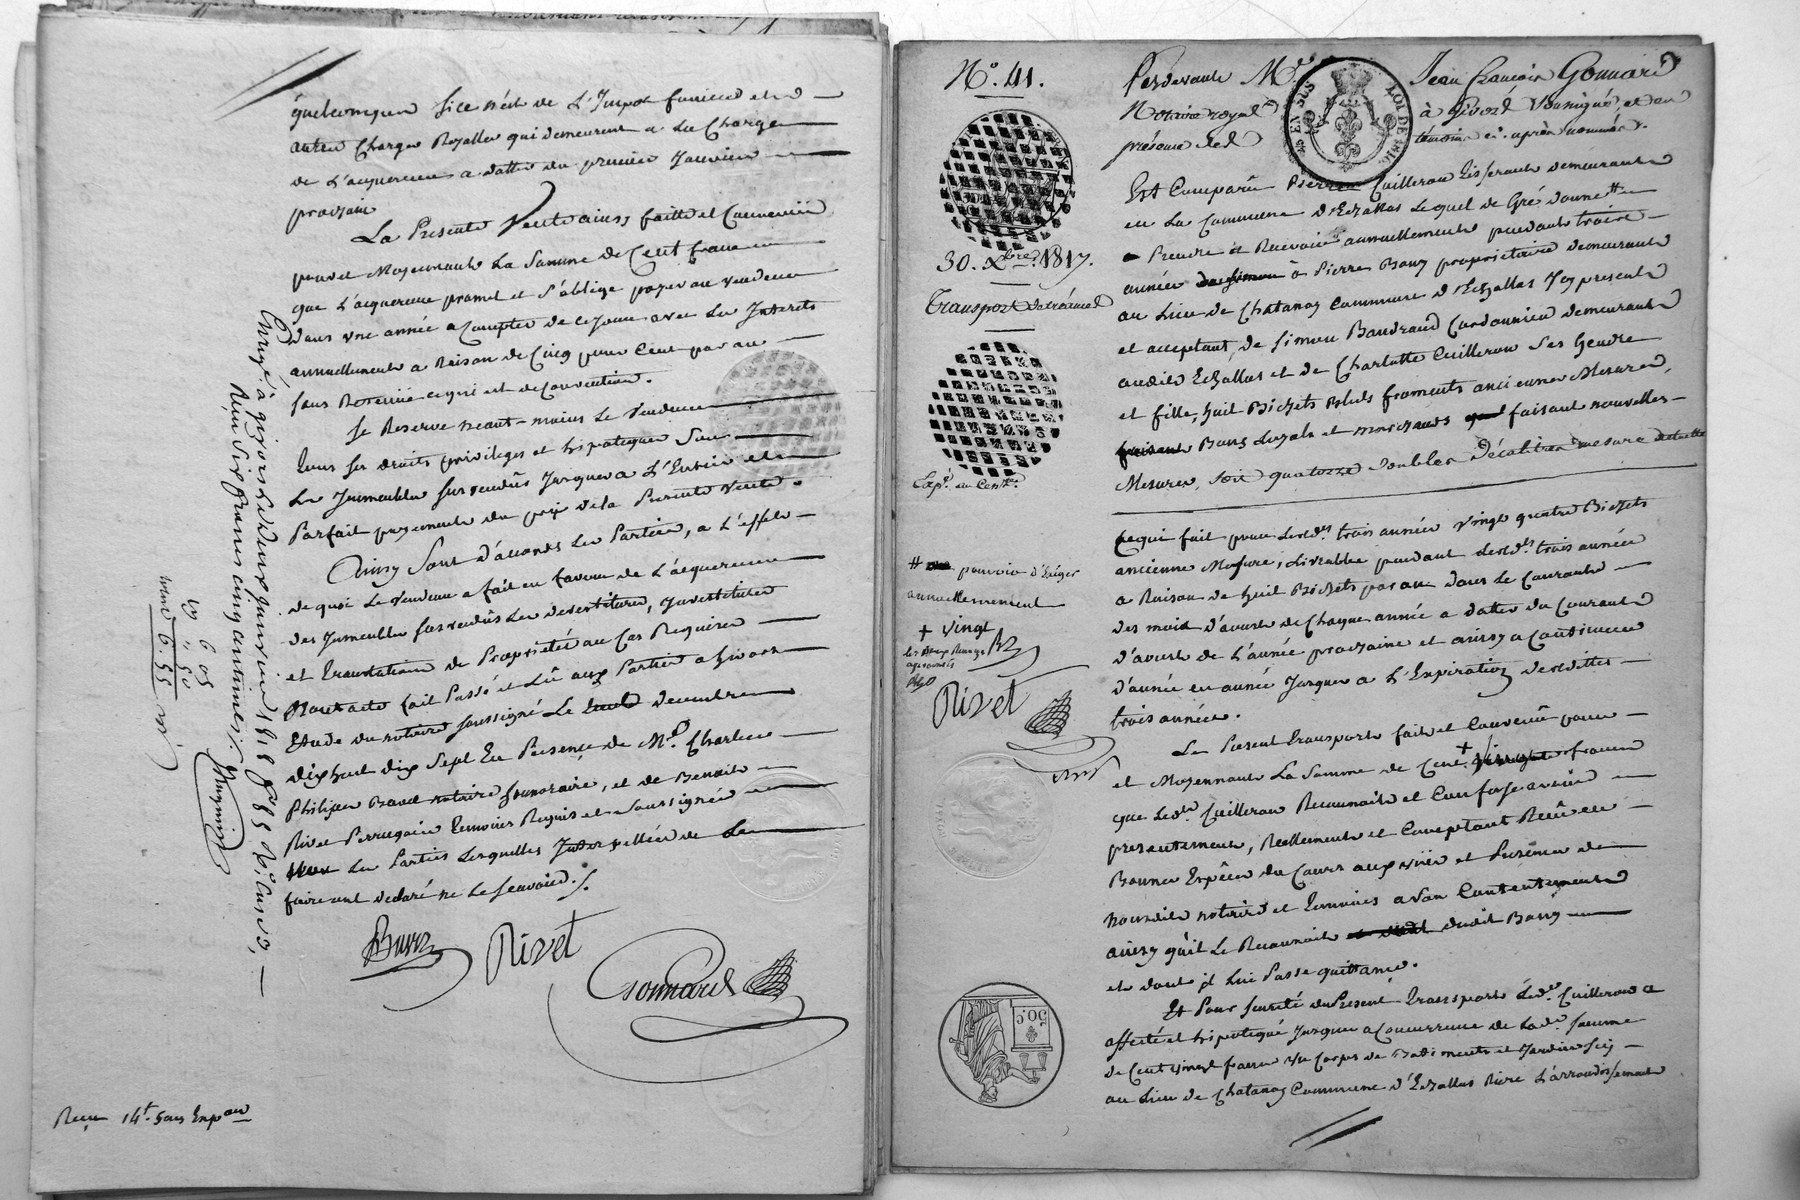 quelconques si ce n'est de L'Impot foncier et d
autres Charges Royalles qui demeurent a La Charge
de L'acquereur a datter du premier Janvier
prochain
La Presente Vente ainsy faitte et Convenüe
pour et Moyennant La Somme de Cent francs
que L'acquereur promet et s'oblige payer au vendeur
dans une année a Compter de ce Jour avec Les Interets
annuellement a Raison de Cinq pour Cent par an
sans Retenüe ce qui est de Convention.
Se Reserve neant-moins Le Vendeur
tous ses droits privileges et hipoteques Sur
Les Immeubles sus vendûs Jusques a L'Entier et
Parfait payement du prix de la Presente Vente.
Ainsy Sont d'accords Les Parties, a L'effet
de quoi Le Vendeur a fait en faveur de L'acquereur
des Immeubles sus vendûs Les devestitures, Investitures
et translation de Propriété au Cas Requises
Dont acte fait Passé et Lû aux Parties a Givors
Etude du notaire soussigné Le decembre
dix huit dix Sept En Presence de Mr. Charles
Philippe notaire honoraire, et de Benoit
Rivet Perruquier temoins Requis et Soussignés
Les Parties Lesquelles Interpellées de Le
faire ont declaré ne Le scavoir ./.
Rivet
Gonnard
Enregé. à givors le deux janvier 1818 fo. 85 Vo. Cases,
Reçu six francs cinq centimes.
6 05
" 50
6. 55
Reçu 14f. sans Expon
No. 41.
30. Xbre. 1817.
Transport de
Capl. au Centre.
# pouvoir d'Exiger
annuellement
+ Vingt
approuvés
Rivet
Pardevant Me. Jean François Gonnard
Notaire royal à Givors soussigné, et en
présence des témoins ci-après nommés.
25 EN SUS
LOI DE 1816
Est Comparû Pierre Cuilleron tisserant demeurant
en La Commune d'Echallas Lequel de Gré donne #
Prendre et Recevoir annuellement pendant trois
années à Pierre Bony proprietaire demeurant
au Lieu de Chatanay Commune d'Echallas Icy present
et acceptant, de Simon Baudrand Cordonnier demeurant
audit Echallas et de Charlotte Cuilleron Ses Gendre
et fille, huit Bichets Bleds froments ancienne Mesure,
Bons Loyals et marchands faisant nouvelles
Mesures, soit quatorze doubles Décalitres mesure
Ce qui fait pour Lesdes. trois années Vingt quatre Bichets
ancienne Mesure, Livrables pendant Lesdes. trois années
a Raison de huit Bichets par an dans Le Courant
des mois d'aoust de Chaque année a datter du Courant
d'aoust de L'année prochaine et ainsy a Continuer
d'année en année Jusques a L'Expiration desdittes
trois années.
Le Present transport fait et Convenû pour
et Moyennant La Somme de Cent + francs
que Ledt. Cuilleron Reconnait et Confesse avoir
presentement, Réellement et Comptant Reçû en
Bonnes Espèces du Cours aux vües et presence de
nousdit notaire et temoins a Son Contentement
ainsy qu'il Le Reconnait dudit Bony
et dont il Lui Passe quittance.
Et Pour sureté du Present transport Ledt. Cuilleron a
affecté et hipotequé Jusques a Concurrence de Lade. somme
de Cent vingt francs Un Corps de Batiments et Jardin Scis
au Lieu de Chatanay Commune d'Echallas Rive L'arrondissement
50 C.